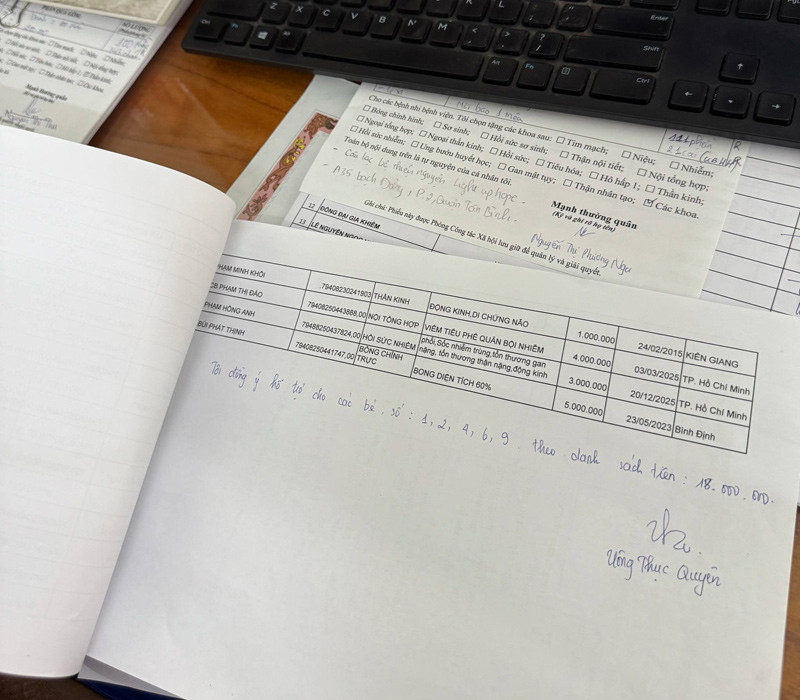 Z X C V B N M
Enter
Shift
Alt Fn Ctrl
Cho các bệnh nhi bệnh viện. Tôi chọn tặng các khoa sau: ☐ Tim mạch; ☐ Niệu; ☐ Nhiễm;
☐ Bỏng chỉnh hình; ☐ Sơ sinh; ☐ Hồi sức sơ sinh; ☐ Thận nội tiết; ☐ Nội tổng hợp;
☐ Ngoại tổng hợp; ☐ Ngoại thần kinh; ☐ Hồi sức; ☐ Tiêu hóa; ☐ Hô hấp 1; ☐ Thần kinh;
☐ Hồi sức nhiễm; ☐ Ung bướu huyết học; ☐ Gan mật tụy; ☐ Thận nhân tạo; ☑ Các khoa.
Toàn bộ nội dung trên là tự nguyện của cá nhân tôi.
- Câu lạc bộ thiện nguyện Light up hope.
- A35 Bạch Đằng, P.2, Quận Tân Bình.
Mạnh thường quân
(Ký và ghi rõ họ tên)
Nguyễn Thị Phương Ngu
Ghi chú: Phiếu này được Phòng Công tác Xã hội lưu giữ để quản lý và giải quyết.
12 ĐỒNG ĐẠI GIA KHIÊM
13 LÊ NGUYỄN NGỌC
PHẠM MINH KHÔI 79408230241903 THẦN KINH ĐỘNG KINH,DI CHỨNG NÃO 1.000.000 24/02/2015 KIÊN GIANG
CB PHẠM THỊ ĐÀO 79408250443888,00 NỘI TỔNG HỢP VIÊM TIỂU PHẾ QUẢN BỘI NHIỄM 4.000.000 03/03/2025 TP. Hồ Chí Minh
PHẠM HỒNG ANH 79488250437824,00 HỒI SỨC NHIỄM phổi,Sốc nhiễm trùng,tổn thương gan nặng, tổn thương thận nặng,động kinh 3.000.000 20/12/2025 TP. Hồ Chí Minh
BÙI PHÁT THỊNH 79408250441747,00 BỎNG CHỈNH TRỰC BỎNG DIỆN TÍCH 60% 5.000.000 23/05/2023 Bình Định
Tôi đồng ý hỗ trợ cho các bé số : 1, 2, 4, 6, 9 theo danh sách trên : 18.000.000.
Uông Thục Quyên